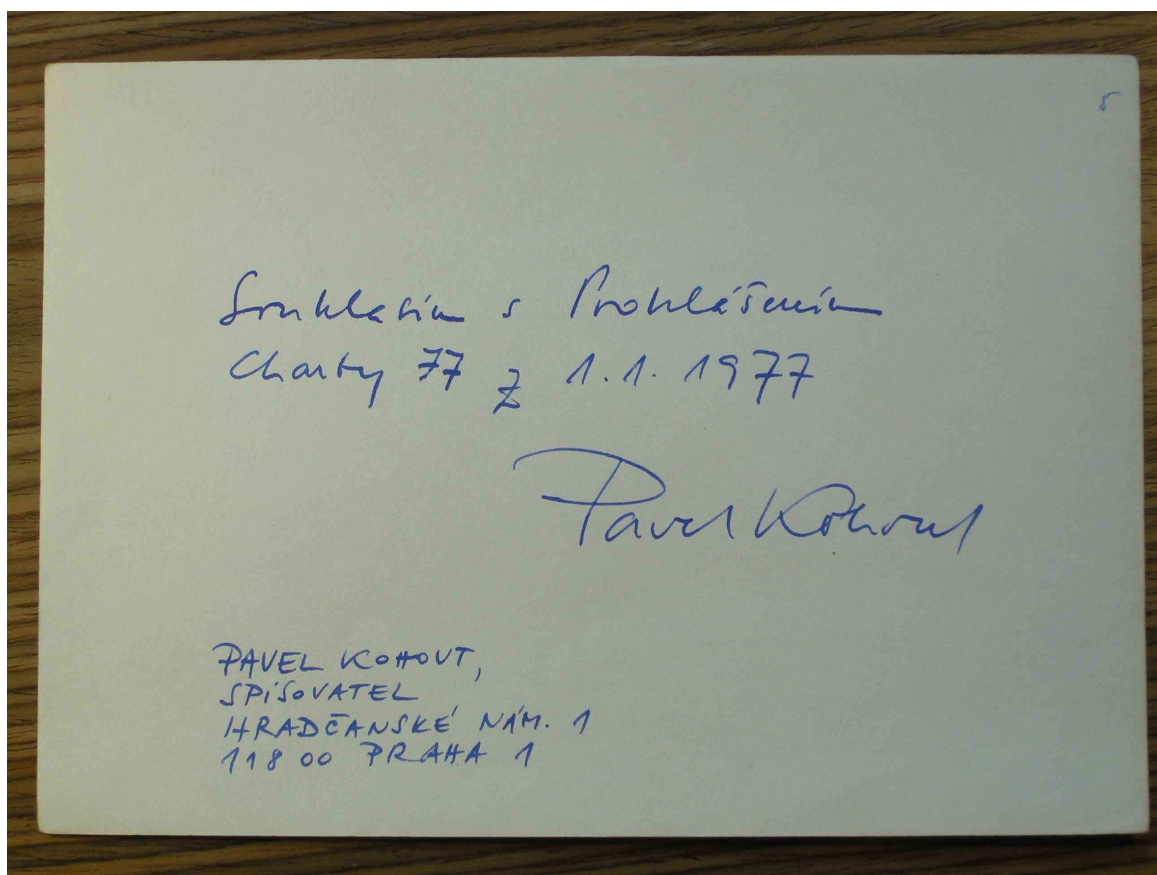 5
Souhlasím s Prohlášením
Charty 77 z 1.1. 1977
Pavel Kohout
PAVEL KOHOUT,
SPISOVATEL
HRADČANSKÉ NÁM. 1
118 00 PRAHA 1